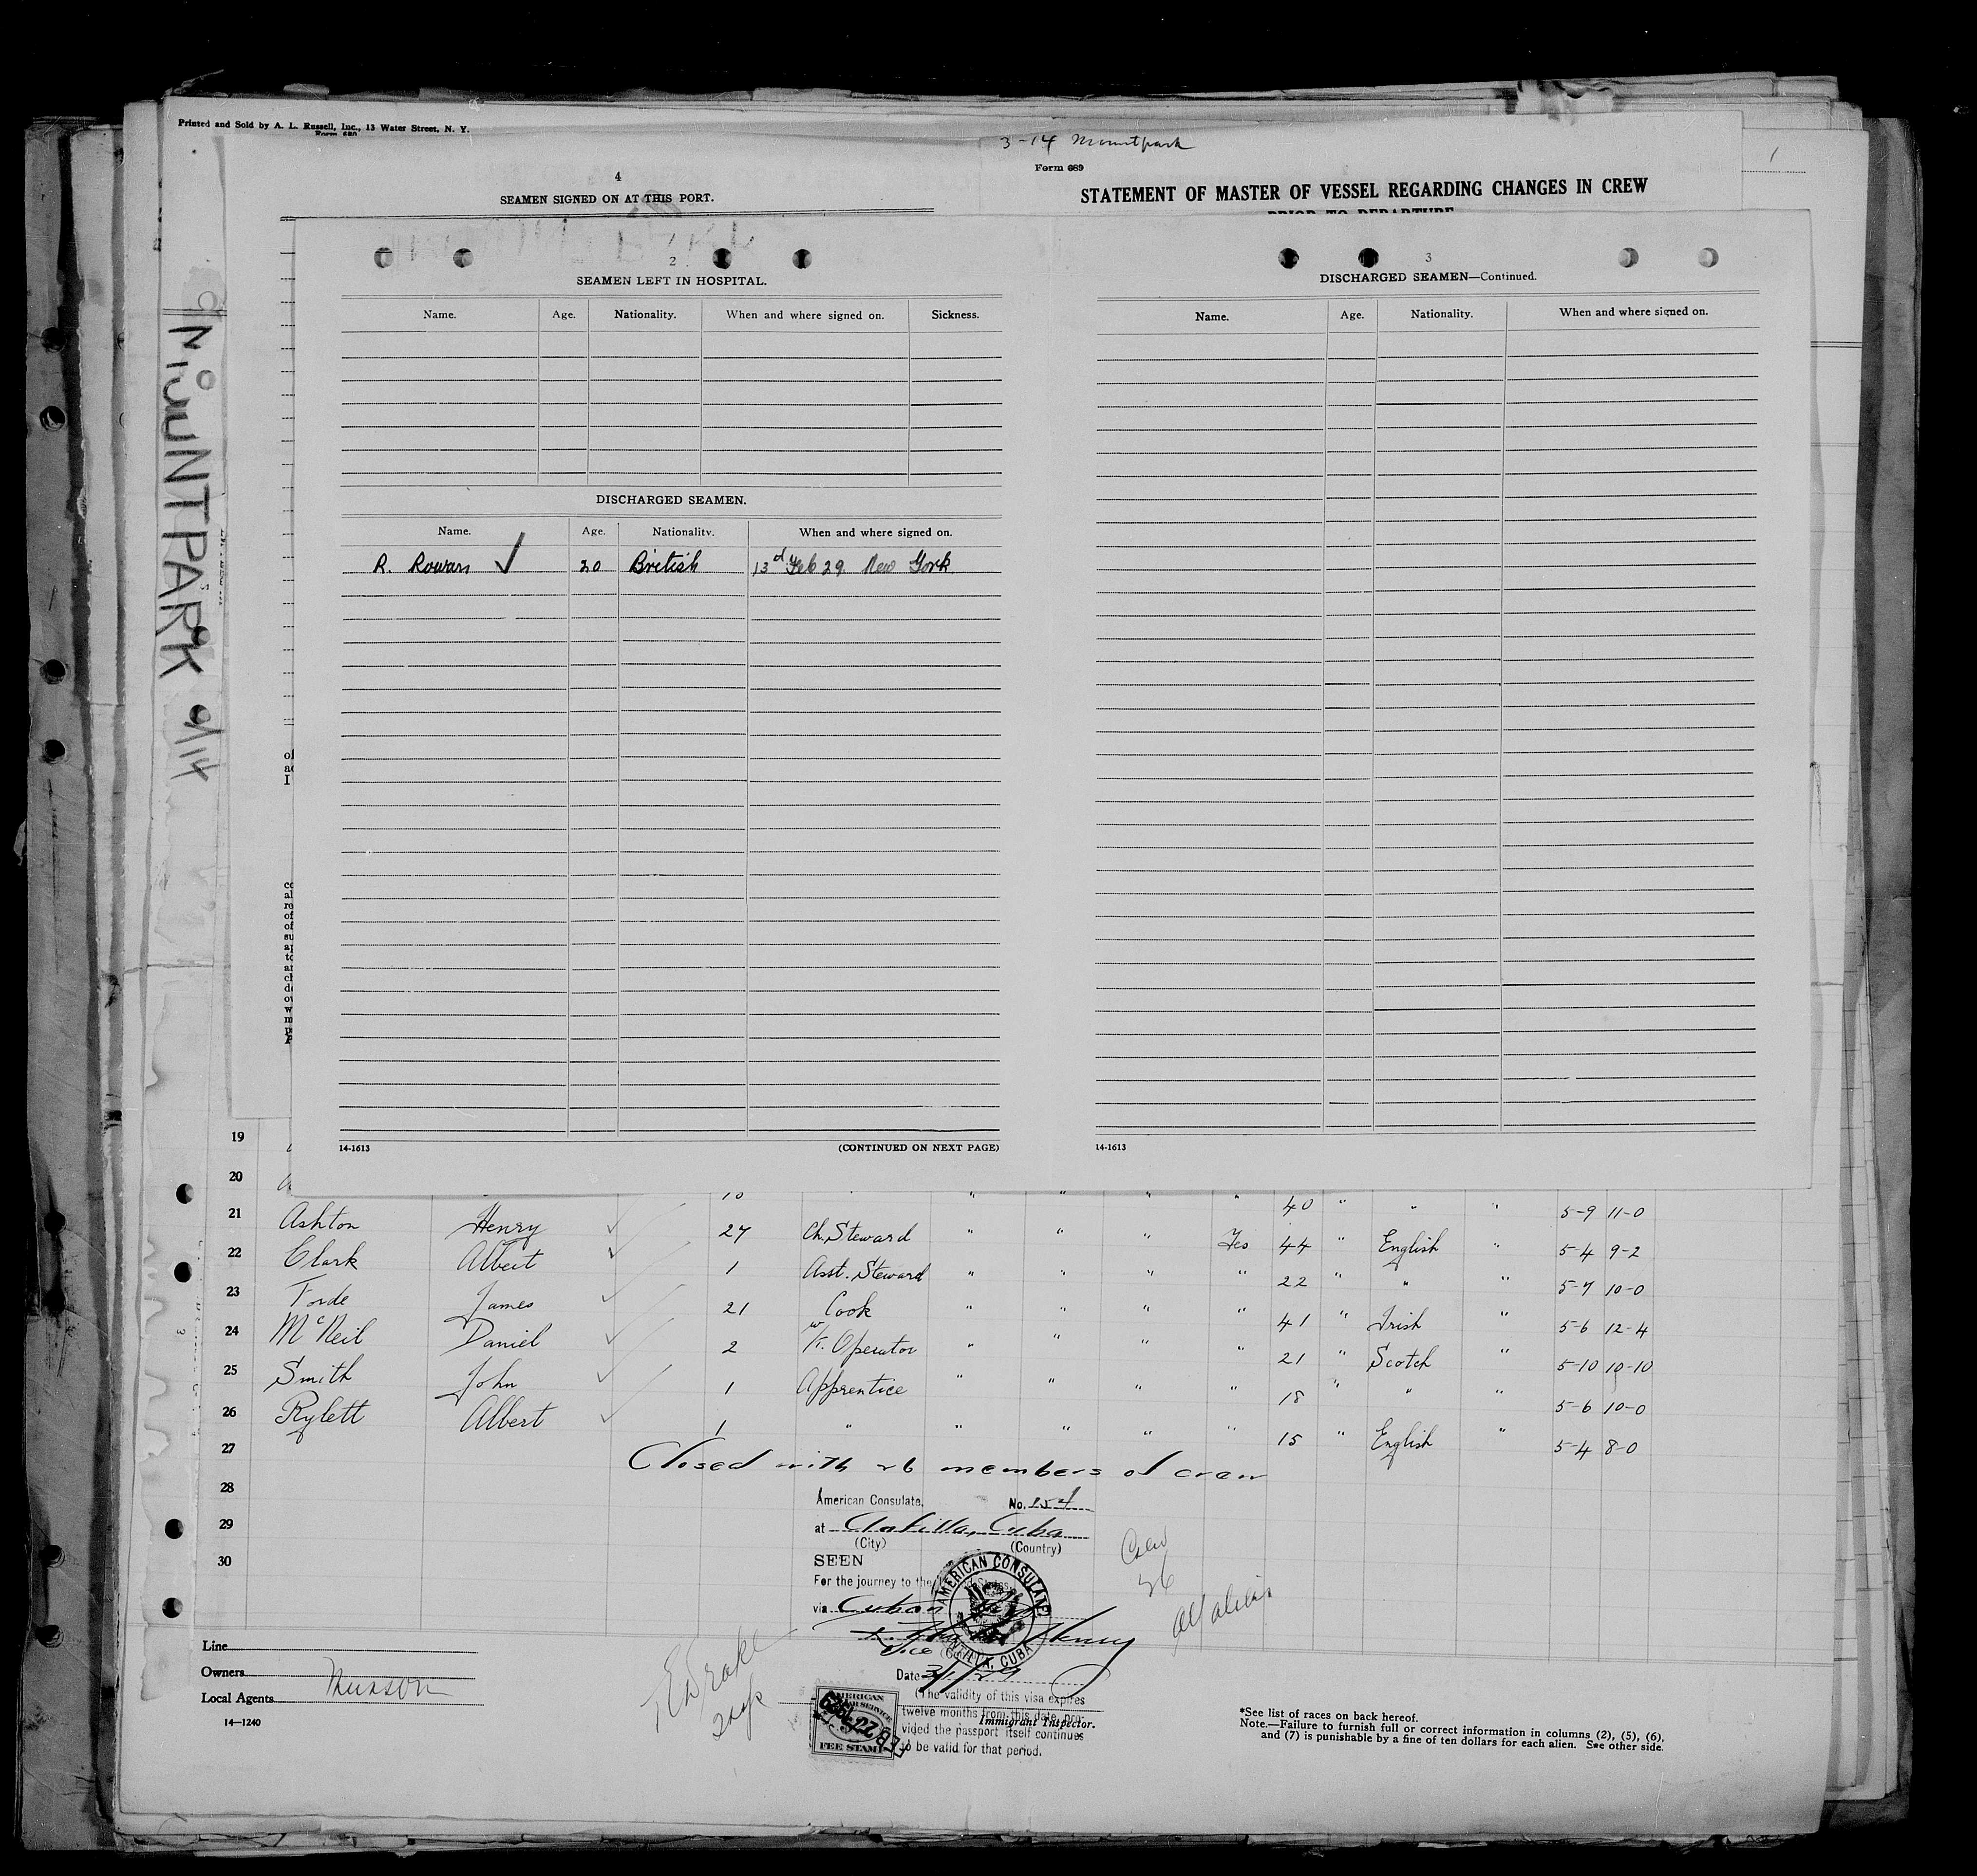 Printed and Sold by A. L. Russell, Inc., 13 Water Street, N. Y.
Form 689
3-14 Mountpark
Form 689
1
4
SEAMEN SIGNED ON AT THIS PORT.
STATEMENT OF MASTER OF VESSEL REGARDING CHANGES IN CREW
PRIOR TO DEPARTURE
MOUNTPARK
2
SEAMEN LEFT IN HOSPITAL.
Name. Age. Nationality. When and where signed on. Sickness.
DISCHARGED SEAMEN.
Name. Age. Nationality. When and where signed on.
R. Rowan ✓ 20 British 13d Feb 29 New York
14-1613 (CONTINUED ON NEXT PAGE)
3
DISCHARGED SEAMEN—Continued.
Name. Age. Nationality. When and where signed on.
14-1613
19
20 10 " " " " 40 " " " 5-9 11-0
21 Ashton Henry 27 Ch. Steward " " " Yes 44 " English " 5-4 9-2
22 Clark Albert 1 Asst. Steward " " " " 22 " " " 5-7 10-0
23 Forde James 21 Cook " " " " 41 " Irish " 5-6 12-4
24 McNeil Daniel 2 W/T. Operator " " " " 21 " Scotch " 5-10 10-10
25 Smith John 1 Apprentice " " " " 18 " " " 5-6 10-0
26 Rylett Albert 1 " " " " " 15 " English " 5-4 8-0
27
Closed with 26 members of crew
28
29
30
American Consulate, No. 154
at Antilla, Cuba
(City) (Country)
SEEN
For the journey to the
via Cuban
Henry
Vice
AMERICAN CONSULAR
ANTILLA, CUBA
Date 3/1/29
(The validity of this visa expires
twelve months from this date, pro-
vided the passport itself continues
to be valid for that period.
Immigrant Inspector.
AMERICAN
SERVICE
FEE STAMP
FEB 22 1929
Crew
26
all aliens
Line
Owners
Local Agents Munson
14—1240
*See list of races on back hereof.
Note.—Failure to furnish full or correct information in columns (2), (5), (6),
and (7) is punishable by a fine of ten dollars for each alien. See other side.